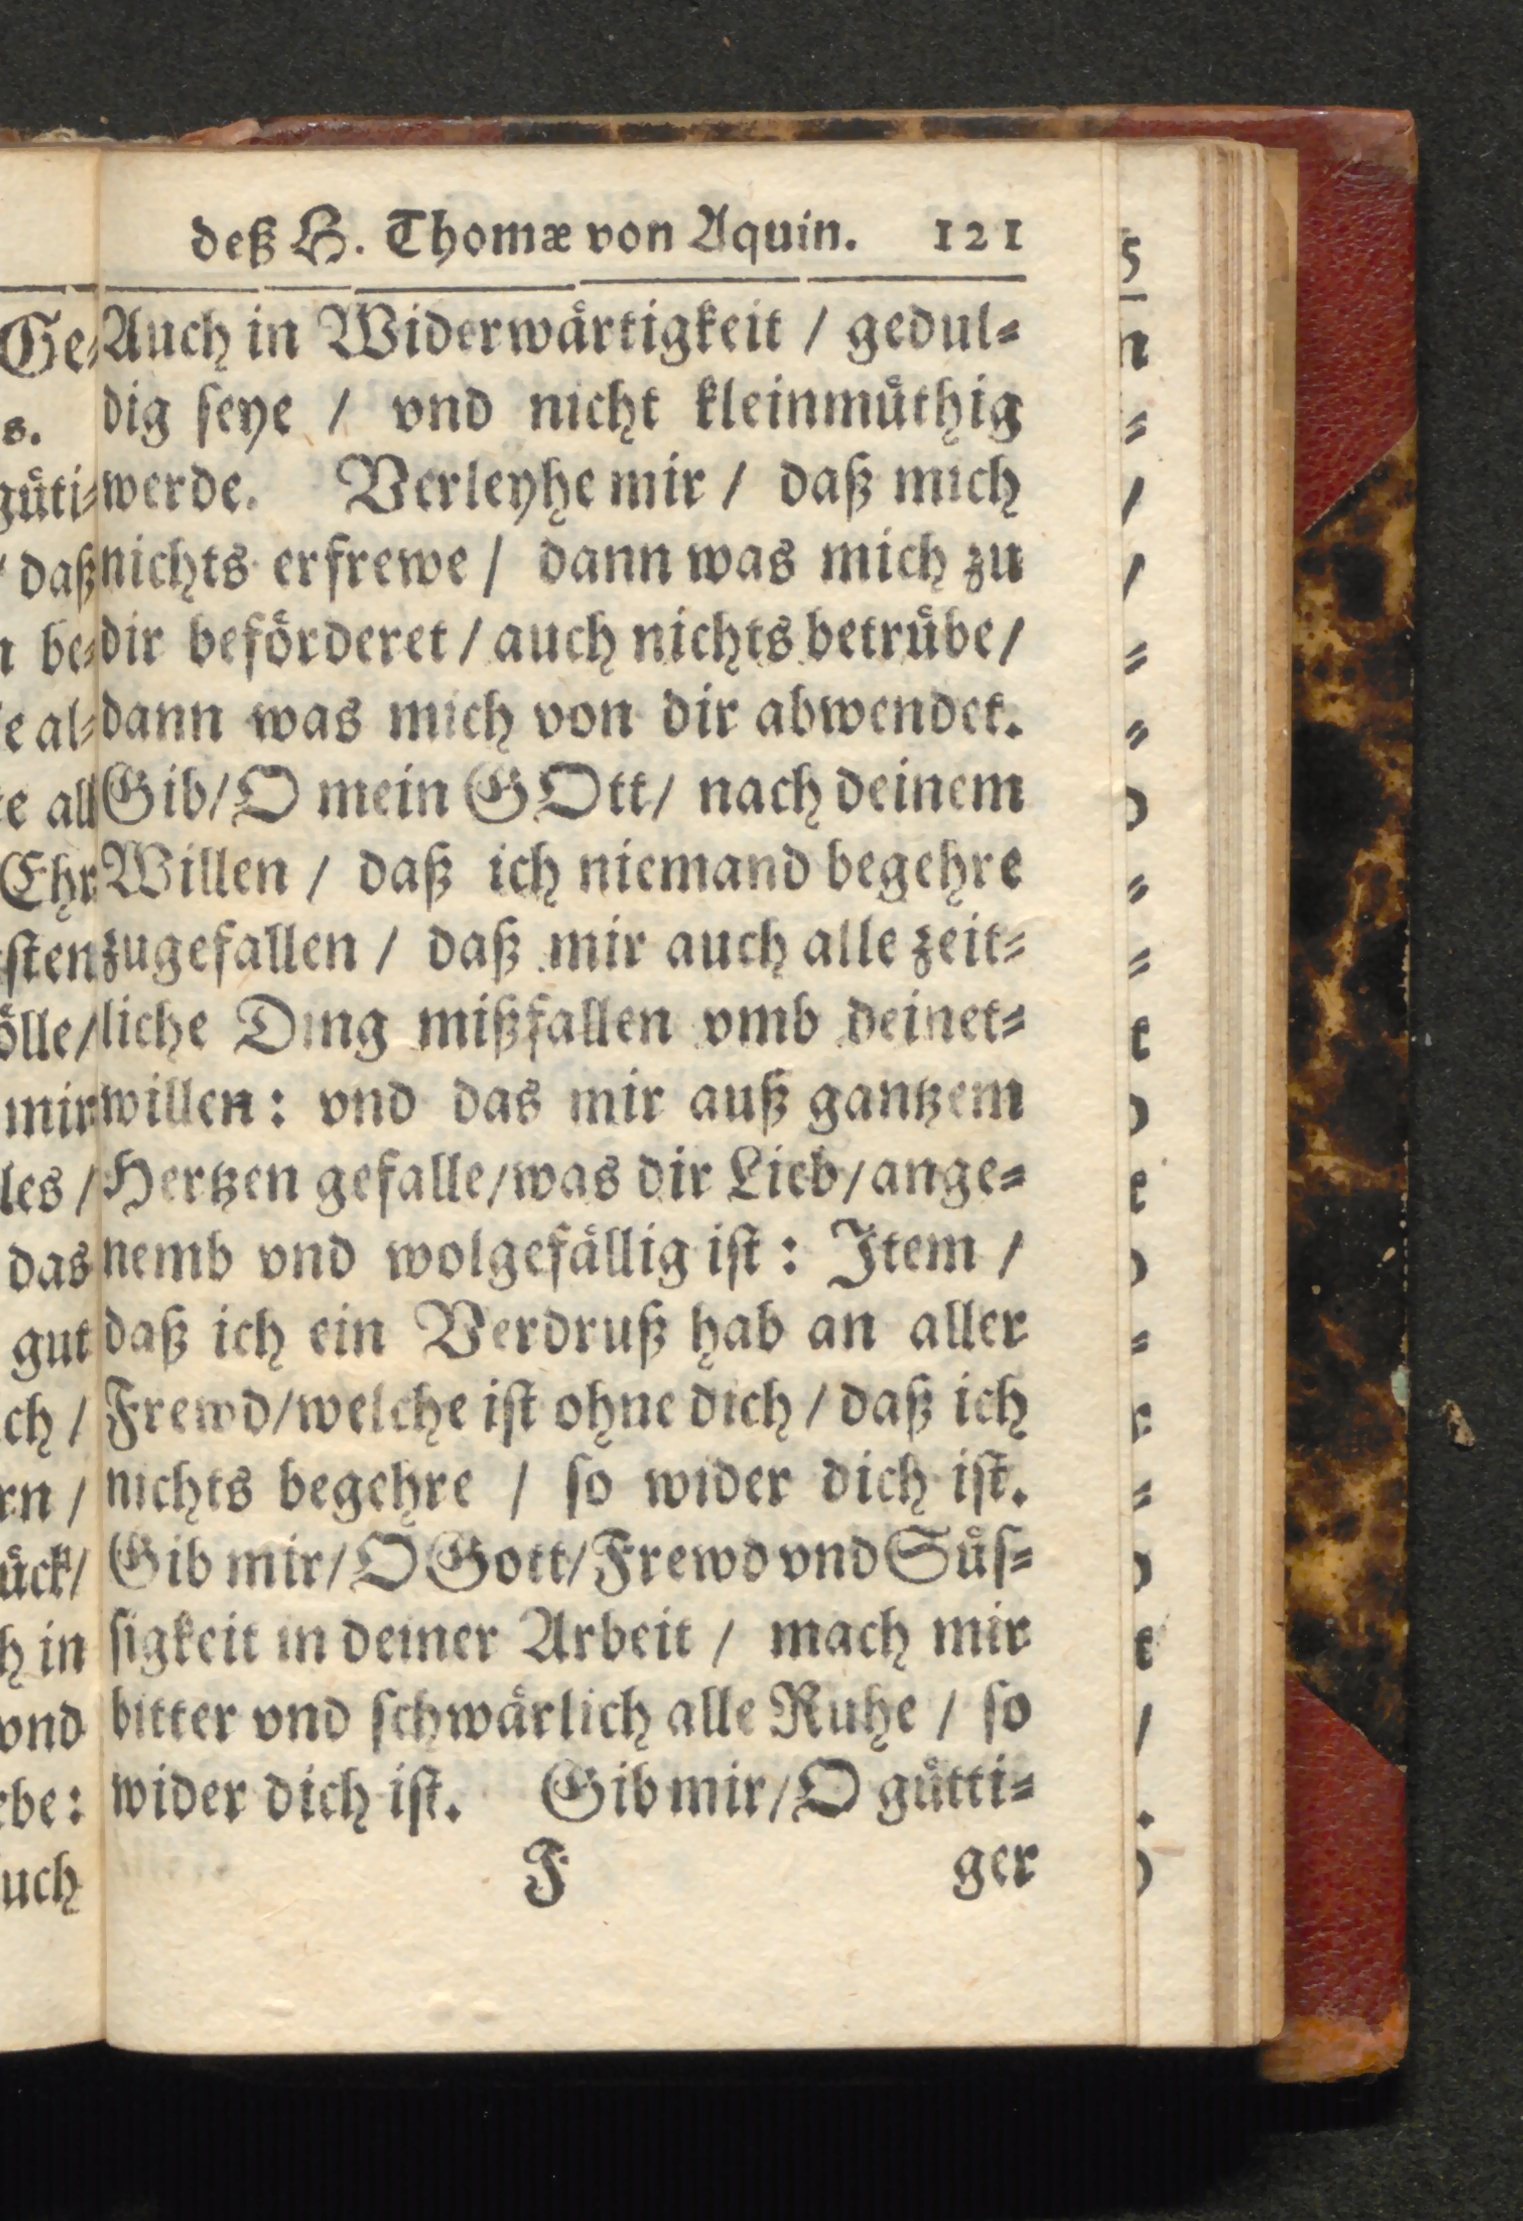 deß H. Thomæ von Aquin. 121
Auch in Widerwårtigkeit / gedul⸗
dig ſeye / vnd nicht kleinmůthig
werde. Verleyhe mir / daß mich
nichts erfrewe / dann was mich zu
dir befőrderet / auch nichts betrůbe /
dann was mich von dir abwendet.
Gib / O mein GOtt / nach deinem
Willen / daß ich niemand begehre
zugefallen / daß mir auch alle zeit⸗
liche Ding mißfallen vmb deinet⸗
willen: vnd das mir auß gantzem
Hertzen gefalle / was dir Lieb / ange⸗
nemb vnd wolgefållig iſt: Item /
daß ich ein Verdruß hab an aller
Frewd / welche iſt ohne dich / daß ich
nichts begehre / ſo wider dich iſt.
Gib mir / O Gott / Frewd vnd Sůſ⸗
ſigkeit in deiner Arbeit / mach mir
bitter vnd ſchwårlich alle Ruhe / ſo
wider dich iſt. Gib mir / O gůtti⸗
F ger